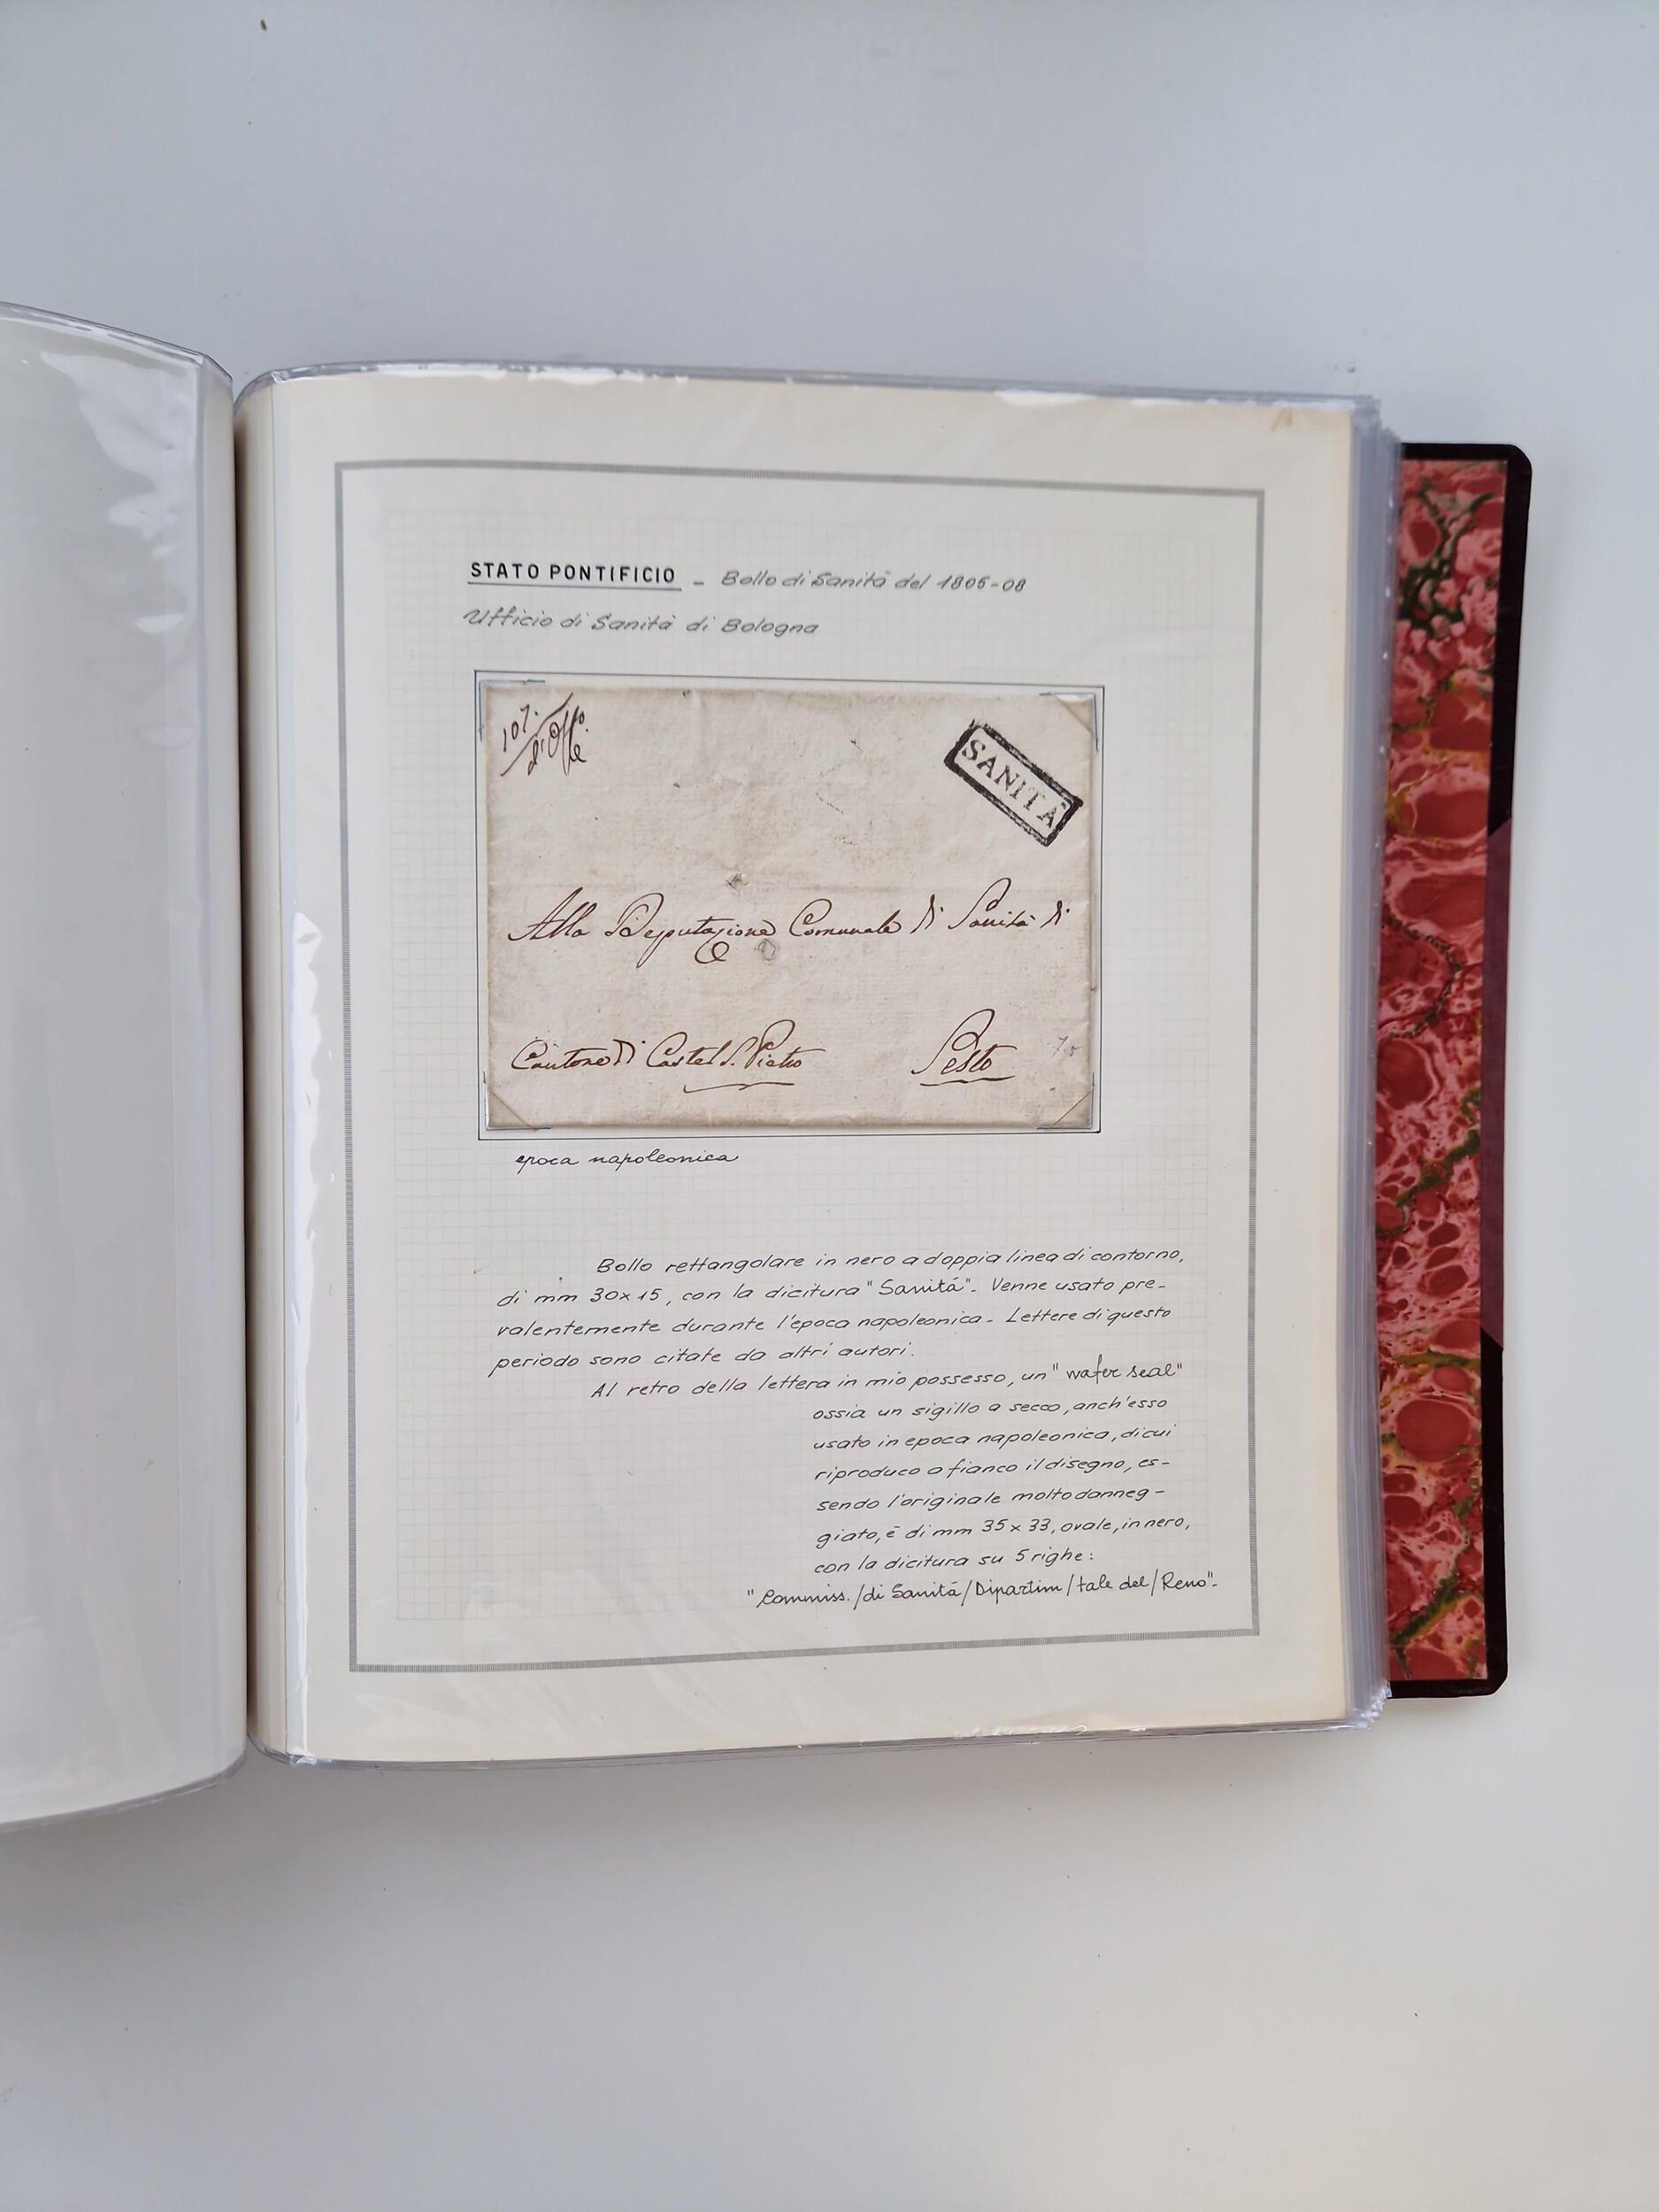 STATO PONTIFICIO - Bollo di Sanità del 1805-08
Ufficio di Sanità di Bologna
107.
d'Off.
SANITÀ
Alla Deputazione Comunale di Sanità di
Cantone di Castel S. Pietro Sesto
epoca napoleonica
Bollo rettangolare in nero a doppia linea di contorno,
di mm 30x15, con la dicitura "Sanitá". Venne usato pre-
valentemente durante l'epoca napoleonica - Lettere di questo
periodo sono citate da altri autori.
Al retro della lettera in mio possesso, un "wafer seal"
ossia un sigillo a secco, anch'esso
usato in epoca napoleonica, di cui
riproduco a fianco il disegno, es-
sendo l'originale molto danneg-
giato, è di mm 35x33, ovale, in nero,
con la dicitura su 5 righe:
"Commiss./di Sanitá/Dipartim/tale del/Reno"-